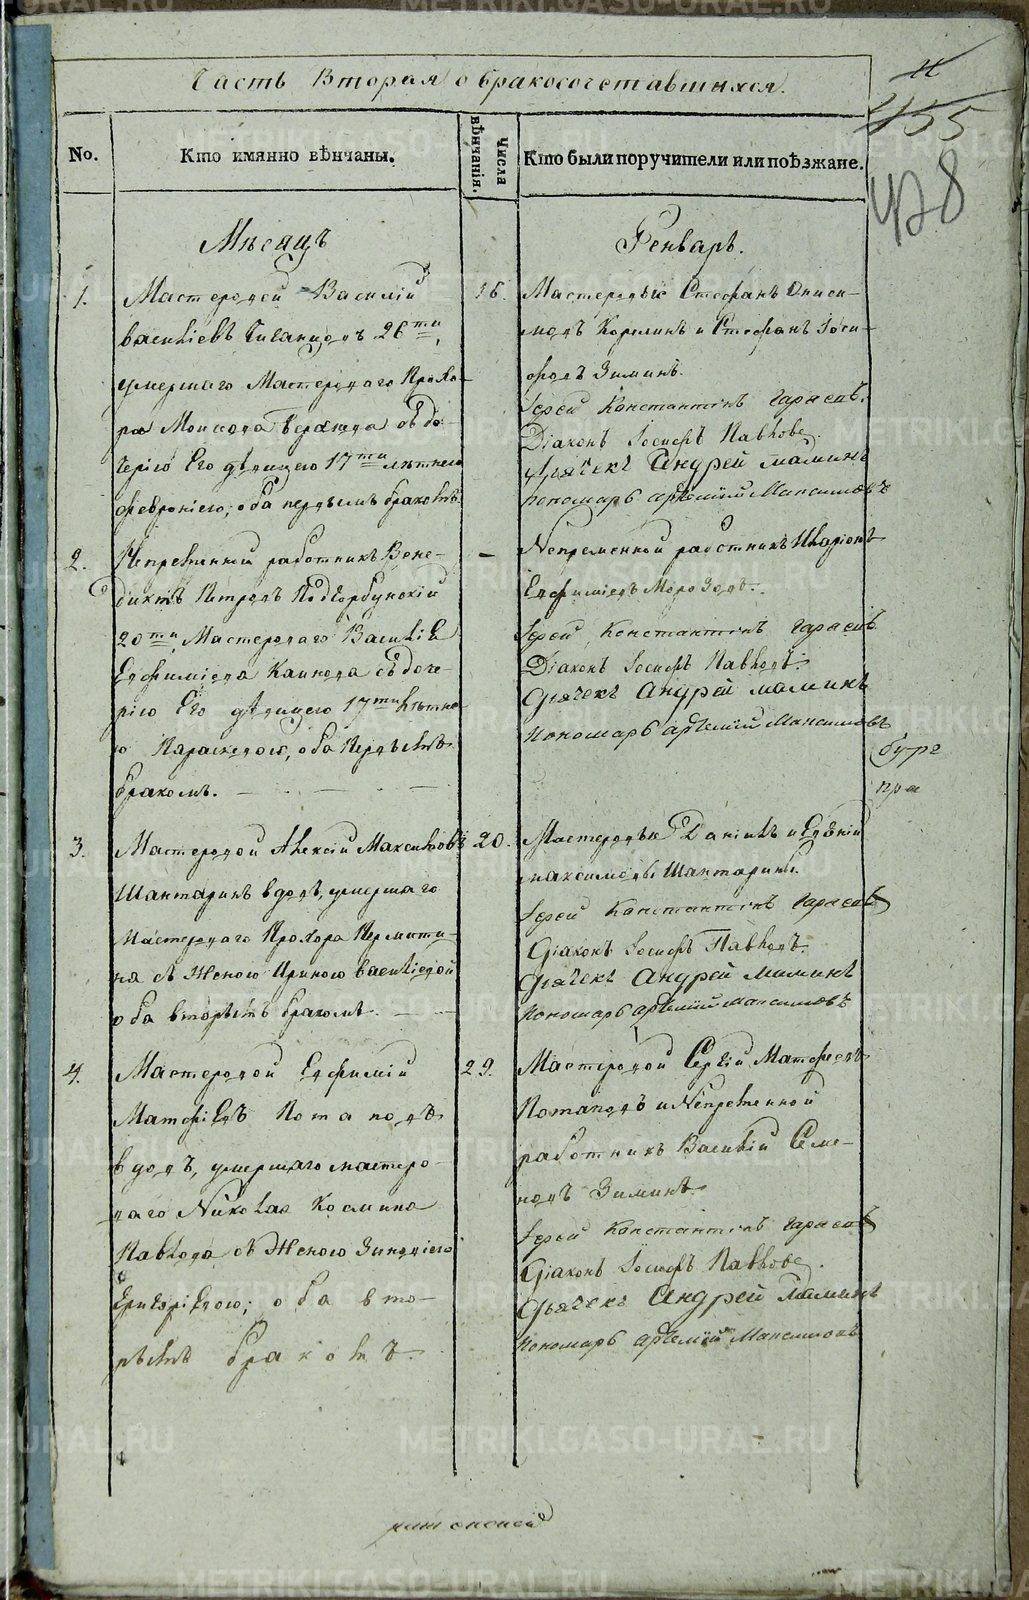 Часть Вторая о бракосочетавшихся.
455
428
No.
Кто имянно вѣнчаны.
Числа вѣнчанія.
Кто были поручители или поѣзжане.
Мѣсяцъ
Генварь.
1.
Мастеровой Василій
Васильевъ 26ти,
умершаго Мастероваго Прохо-
ра съ до-
черію Его дѣвицею 17ти лѣтнею
Февроніею; оба первымъ бракомъ
16.
Мастеровые Стефанъ Ониси-
мовъ и Стефанъ Іоси-
фовъ Зиминъ.
Іерей Константинъ
Діаконъ Іосифъ Павловъ
Дьячекъ Андрей Маминъ
Пономарь Артемій Максимовъ
2.
Непременной работникъ Вене-
диктъ Петровъ Подгорбунскій
20ти, Мастероваго Василья
Евфиміева съ доче-
рію Его дѣвицею 17ти лѣтне-
ю Параскевою, оба первымъ
бракомъ.
Непременной работникъ Иларіонъ
Евфиміевъ Морозовъ.
Іерей Константинъ
Діаконъ Іосифъ Павловъ.
Дьячекъ Андрей Маминъ
Пономарь Артемій Максимовъ
3.
Мастеровой Алексій Максимовъ
Шантаринъ вдовъ, умершаго
Мастероваго Прохора
съ Женою Ириною Васильевой
оба вторымъ бракомъ.
20.
Мастеровые Даніилъ и Евѳеній
Максимовы Шантарины.
Іерей Константинъ
Діаконъ Іосифъ Павловъ.
Дьячекъ Андрей Маминъ
Пономарь Артемій Максимовъ
4.
Мастеровой Евфимій
Матфіевъ Потаповъ
вдовъ, умершаго мастеро-
ваго Николая Космина
Павлова съ Женою Зиновіею
Григоріевою; оба вто-
рымъ бракомъ.
29.
Мастеровой Сергій Матфеевъ
Потаповъ и Непременной
работникъ Василій Семе-
новъ Зиминъ.
Іерей Константинъ
Діаконъ Іосифъ Павловъ.
Дьячекъ Андрей Маминъ
Пономарь Артемій Максимовъ
METRIKI.GASO-URAL.RU